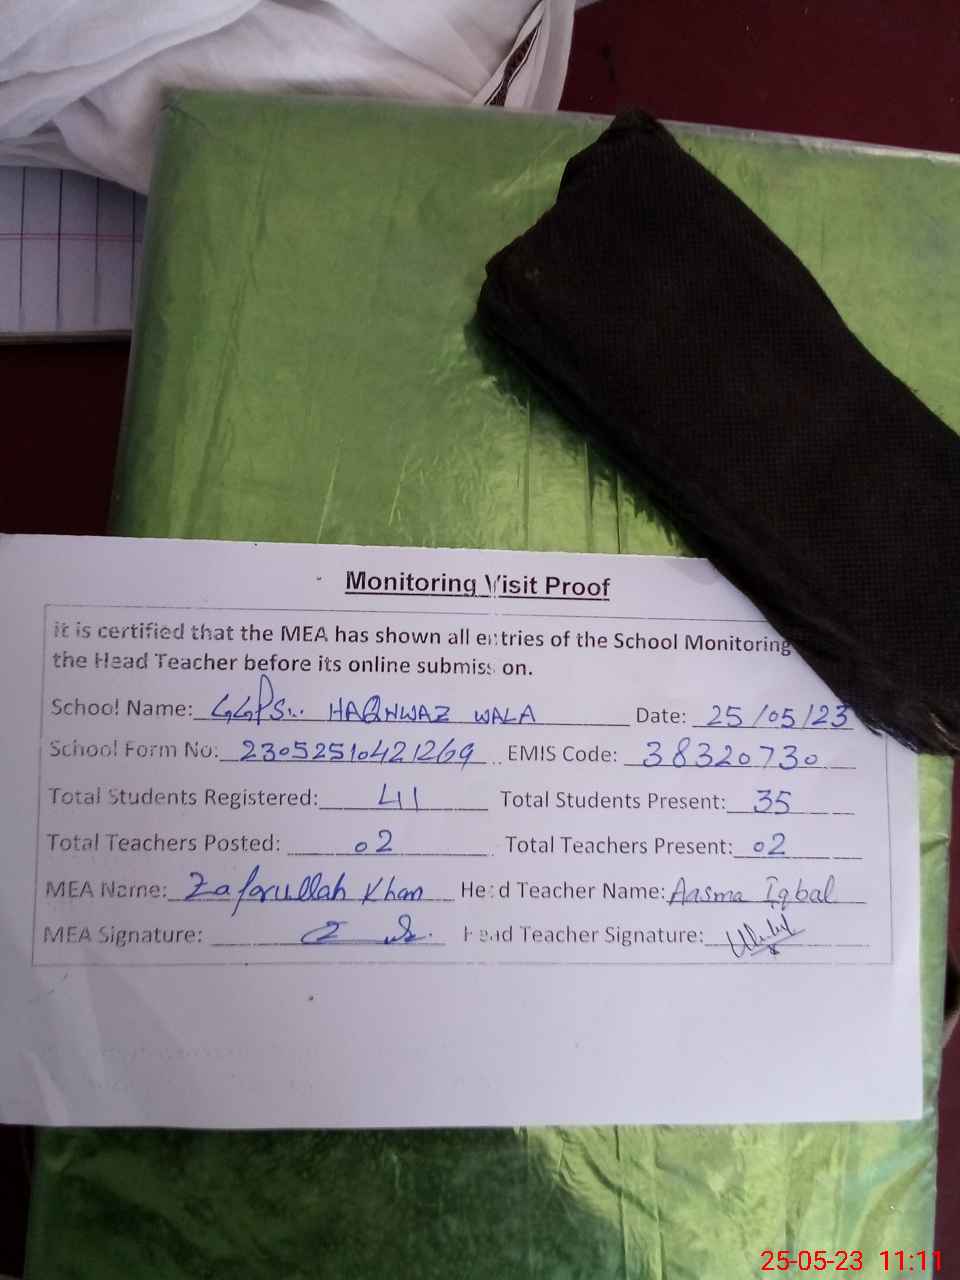 Monitoring Visit Proof
It is certified that the MEA has shown all entries of the School Monitoring
the Head Teacher before its online submission.
School Name: GGPS.. HAQNWAZ WALA Date: 25/05/23
School Form No: 23052510421269 EMIS Code: 38320730
Total Students Registered: 41 Total Students Present: 35
Total Teachers Posted: 02 Total Teachers Present: 02
MEA Name: Zafarullah Khan Head Teacher Name: Aasma Iqbal
MEA Signature: Head Teacher Signature:
25-05-23 11:11